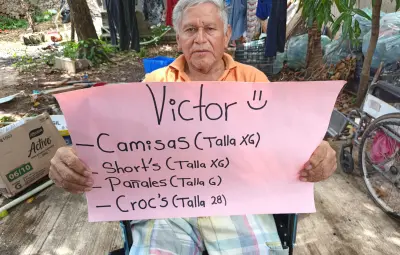 Victor
- Camisas (Talla XG)
- Short's (Talla XG)
- Pañales (Talla G)
- Croc's (Talla 28)
Active